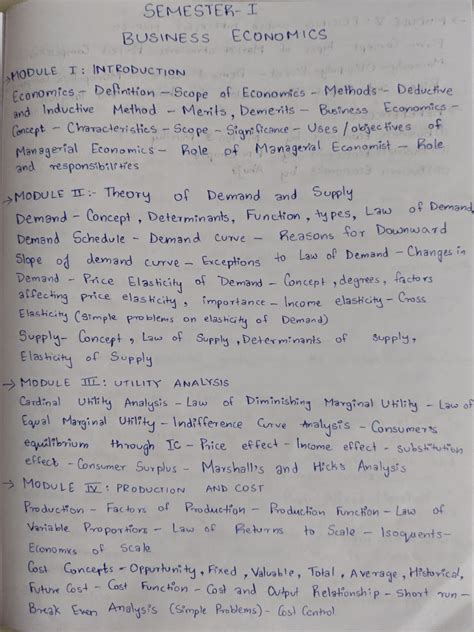 SEMESTER-I
BUSINESS ECONOMICS
→MODULE I: INTRODUCTION
Economics - Definition - Scope of Economics - Methods - Deductive
and Inductive Method - Merits, Demerits - Business Economics -
Concept - Characteristics - Scope - Significance - Uses / objectives of
Managerial Economics - Role of Managerial Economist - Role
and responsibilities
→MODULE II:- Theory of Demand and Supply
Demand - Concept, Determinants, Function, types, Law of Demand
Demand Schedule - Demand curve - Reasons for Downward
Slope of demand curve - Exceptions to Law of Demand - Changes in
Demand - Price Elasticity of Demand - Concept, degrees, factors
affecting price elasticity, importance - Income elasticity - Cross
Elasticity (Simple problems on elasticity of Demand)
Supply - Concept, Law of Supply, Determinants of supply,
Elasticity of Supply
→ MODULE III: UTILITY ANALYSIS
Cardinal Utility Analysis - Law of Diminishing Marginal Utility - Law of
Equal Marginal Utility - Indifference Curve Analysis - Consumers
equilibrium through IC - Price effect - Income effect - substitution
effect - Consumer Surplus - Marshall's and Hicks Analysis
→ MODULE IV: PRODUCTION AND COST
Production - Factors of Production - Production Function - Law of
Variable Proportions - Law of Returns to Scale - Isoquents -
Economies of Scale
Cost Concepts - Opportunity, Fixed, Valuable, Total, Average, Historical,
Future Cost - Cost Function - Cost and Output Relationship - Short run -
Break Even Analysis (Simple Problems) - Cost Control